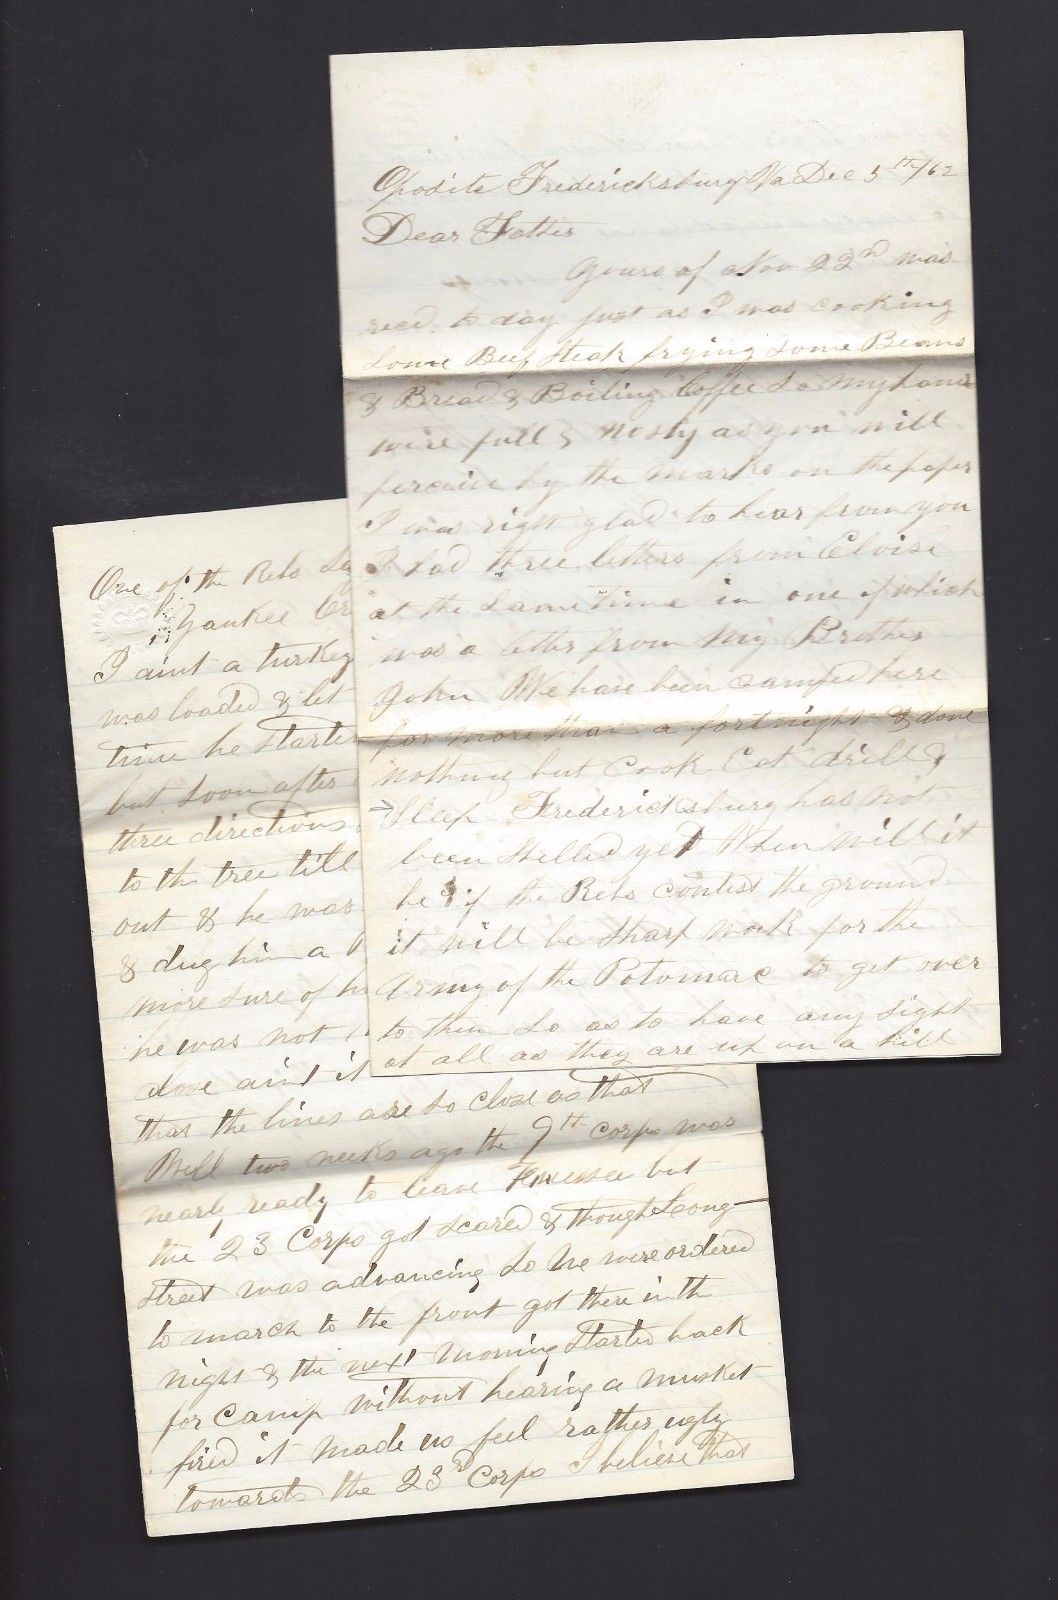 Oposite Fredericksburg Va Dec 5th/62
Dear Father
Yours of Nov 22nd was
recd. to day just as I was cooking
some Beef Steak frying some Beans
& Bread & Boiling Coffee so my hands
were full & nosty as you will
perceive by the marks on the paper
I was right glad to hear from you
I had three letters from Eloise
at the same time in one of which
was a letter from my Brother
John We have been camped here
for more than a fortnight & done
nothing but Cook Eat drill &
Sleep Fredericksburg has not
been shelled yet When will it
be ? if the Rebs contest the ground
it will be sharp work for the
Army of the Potomac to get over
to them so as to have any sight
at all as they are up on a hill
One of the Rebs
Yankee
I aint a turkey
was loaded & let
time he started
but soon after
three directions
to the tree till
out & he was
& dug him a
more sure of
he was not
close aint it
that the lines are so close as that
Well two weeks ago the 9th Corps was
nearly ready to leave Tenessee but
the 23 Corps got scared & thought Long-
street was advancing so we were ordered
to march to the front got there in the
night & the next morning started back
for Camp without hearing a musket
fired it made us feel rather ugly
towards the 23rd Corps I believe that